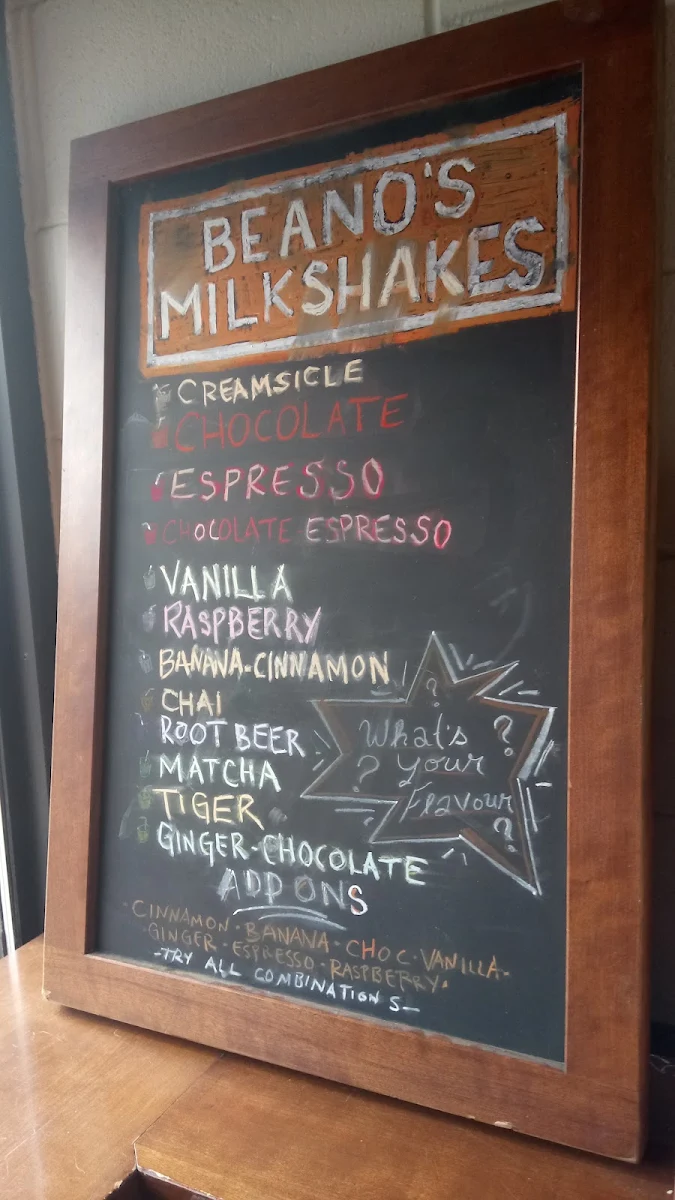 BEANO'S
MILKSHAKES
CREAMSICLE
CHOCOLATE
ESPRESSO
CHOCOLATE ESPRESSO
VANILLA
RASPBERRY
BANANA-CINNAMON
CHAI
ROOT BEER
MATCHA
TIGER
GINGER-CHOCOLATE
?
What's ?
? Your
Flavour
?
ADD ONS
CINNAMON · BANANA · CHOC · VANILLA ·
GINGER · ESPRESSO · RASPBERRY ·
-TRY ALL COMBINATIONS-